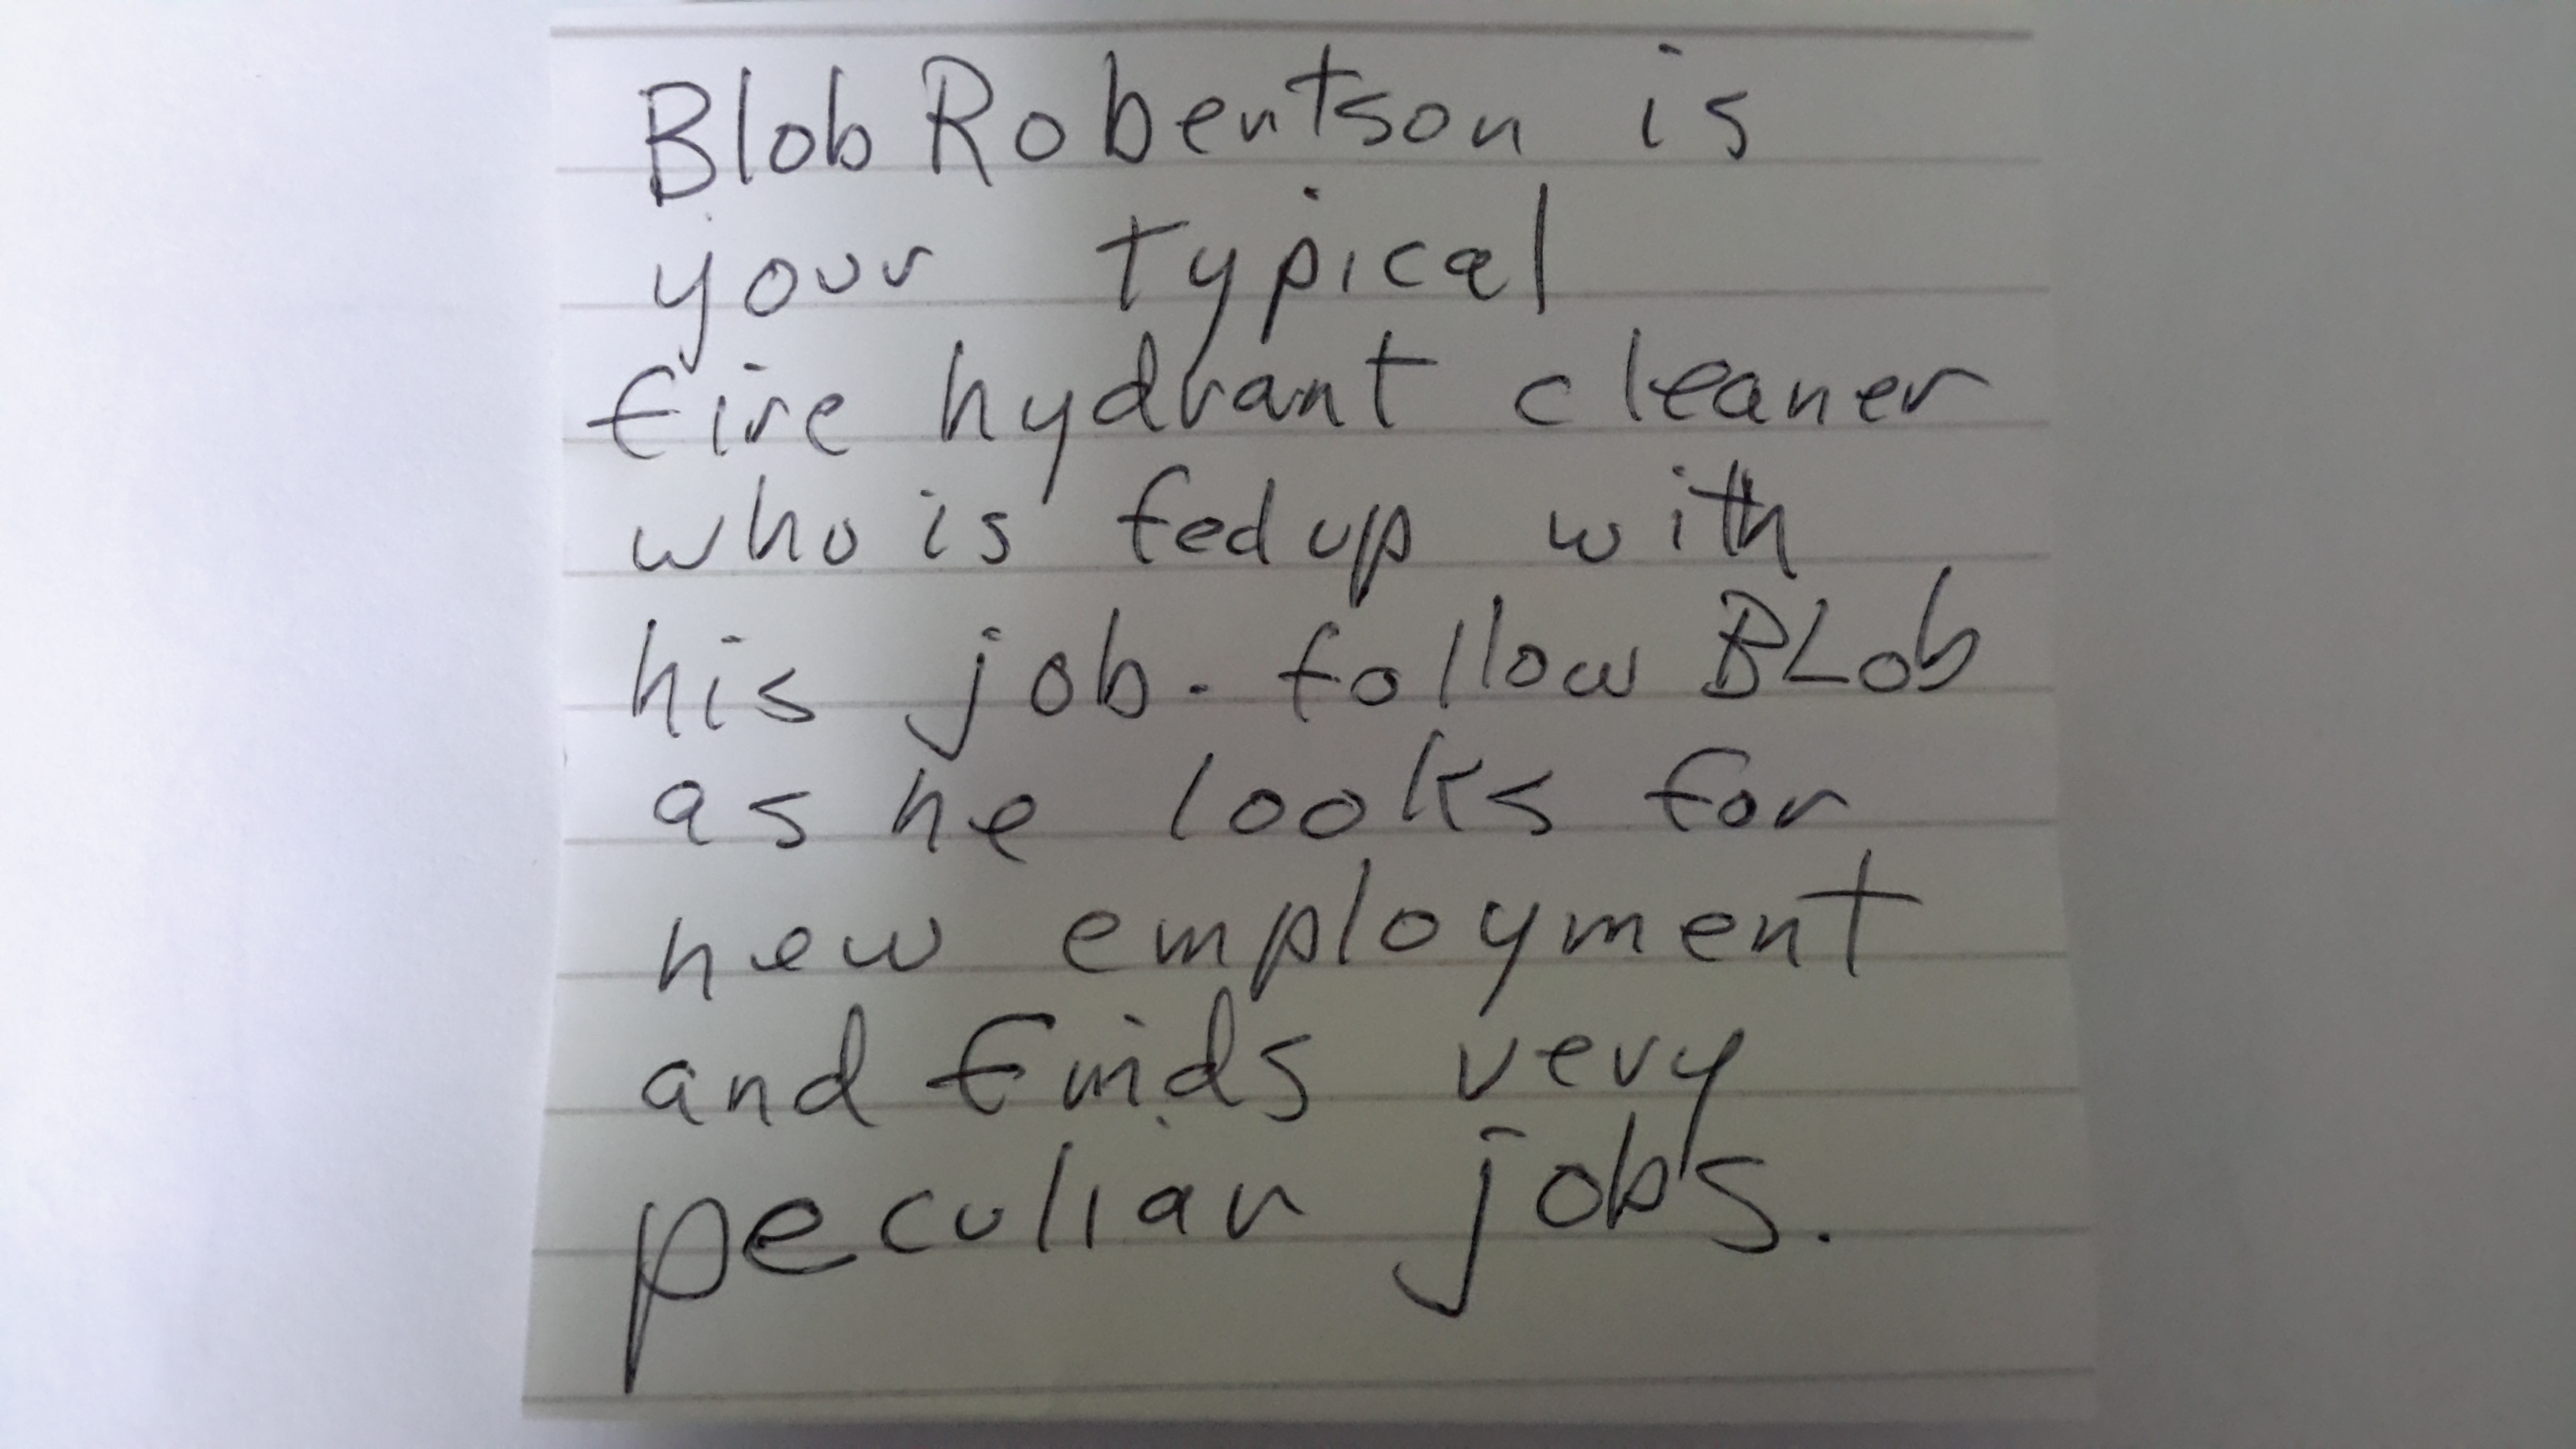 Blob Robertson is
your typical
fire hydrant cleaner
who is fed up with
his job. follow BLob
as he looks for
new employment
and finds very
peculiar jobs.